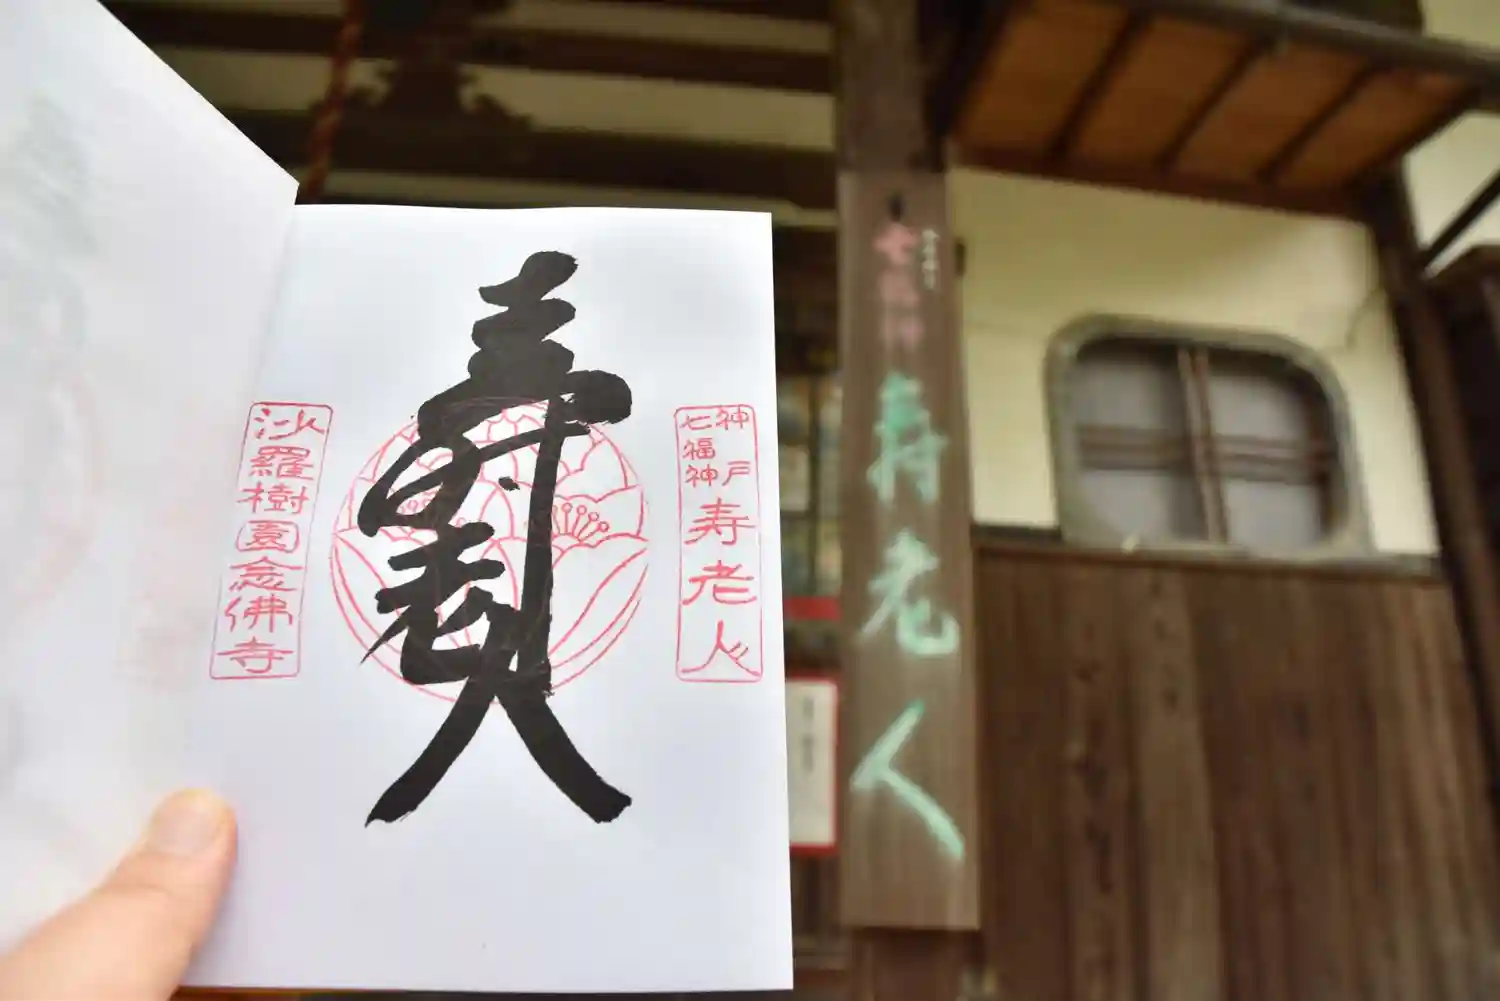 神戸
七福神
寿老人
寿老人
沙羅樹園念佛寺
七福神
寿老人